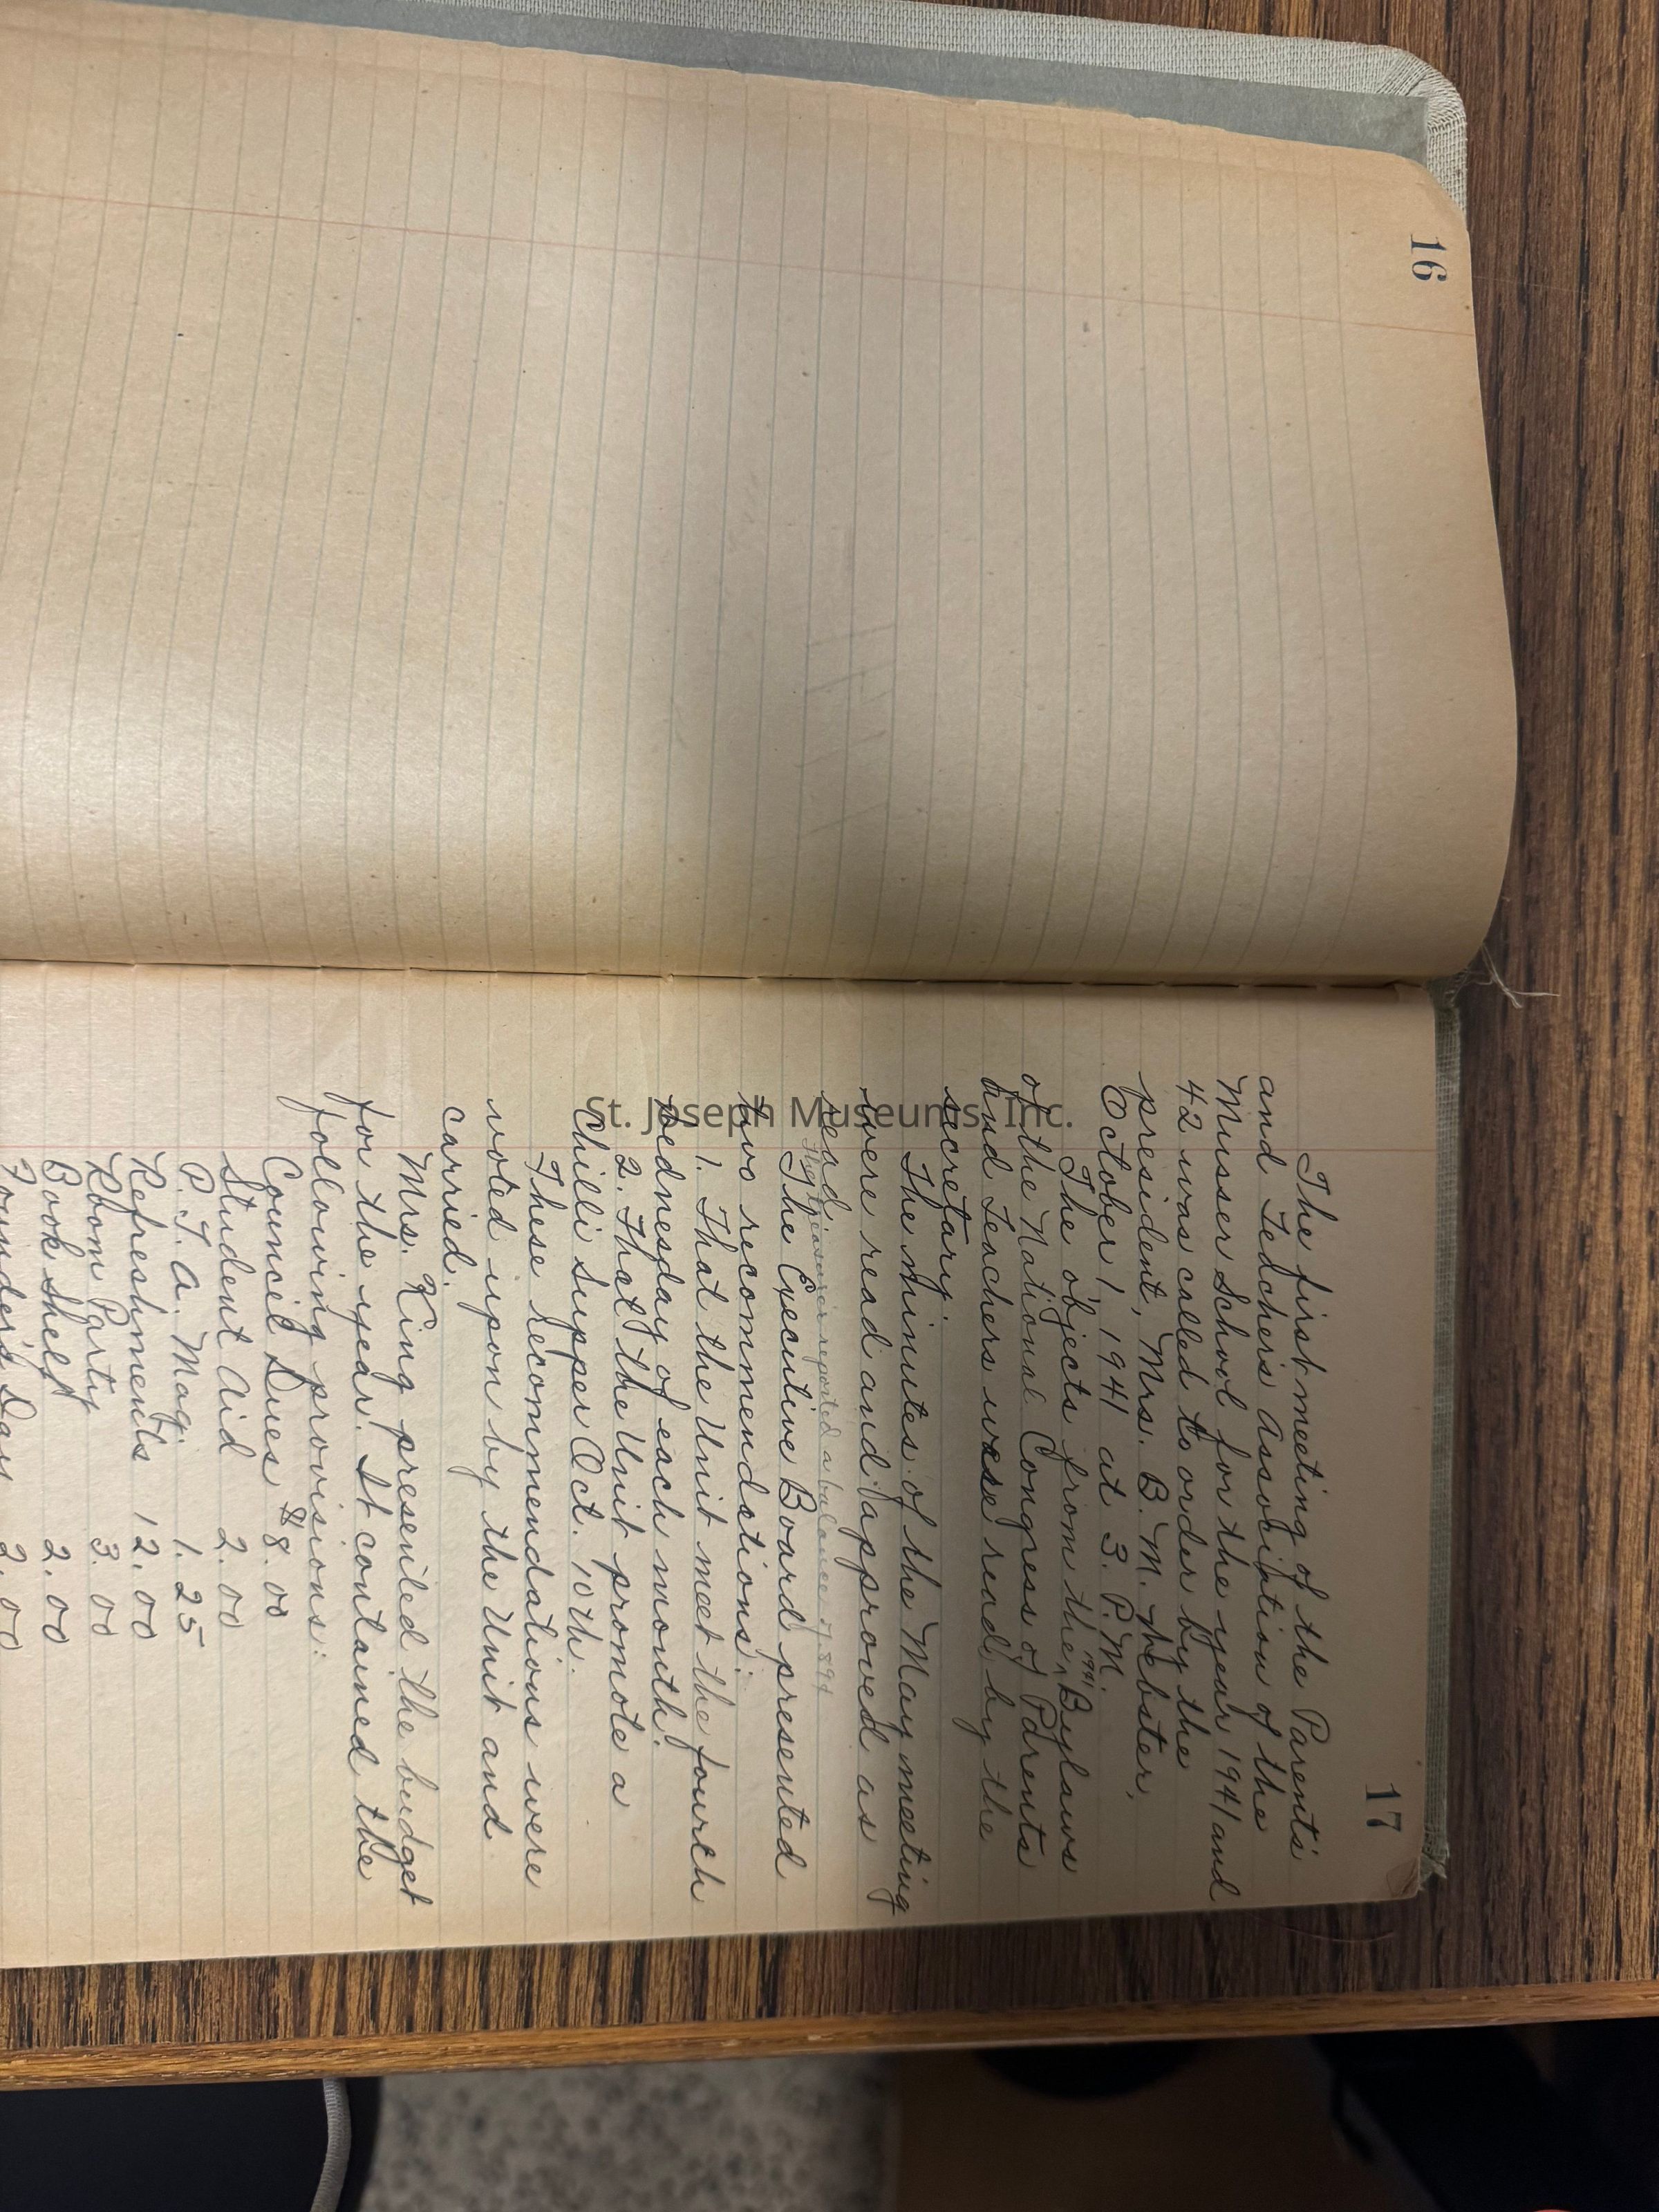 16
17
The first meeting of the Parents'
and Teachers Association of the
Musser School for the year 1941 and
42 was called to order by the
president, Mrs. B. M. Webster,
October 1, 1941 at 3. P.M.
The objects from the 1941 Bylaws
of the National Congress of Parents
and Teachers were read by the
secretary.
The minutes of the May meeting
were read and approved as
read.
The treasurer reported a balance
The Executive Board presented
two recommendations:
1. That the Unit meet the fourth
Wednesday of each month.
2. That the Unit promote a
Chilli Supper Oct. 10th.
These recommendations were
voted upon by the Unit and
carried.
Mrs. King presented the budget
for the year. It contained the
following provisions:
Council Dues $8.00
Student Aid 2.00
P.T.A. Mag. 1.25
Refreshments 12.00
Room Party 3.00
Book Shelf 2.00
Founder's Day 2.00
St. Joseph Museums, Inc.